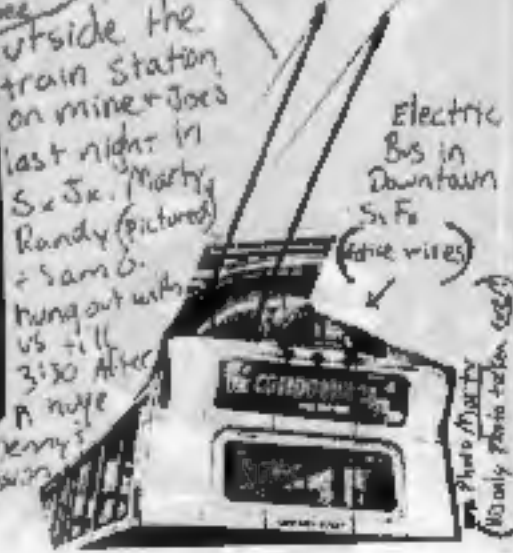 utside the
train Station
on mine + Joe's
last night in
S. Jx. Marty,
Randy (pictured)
+ Sam O.
hung out with
us till
3:30 After
A huge
Denny's
Electric
Bus in
Downtown
S. Fx
(Notice wires)
Photo Marty
(His only Photo taken ever)